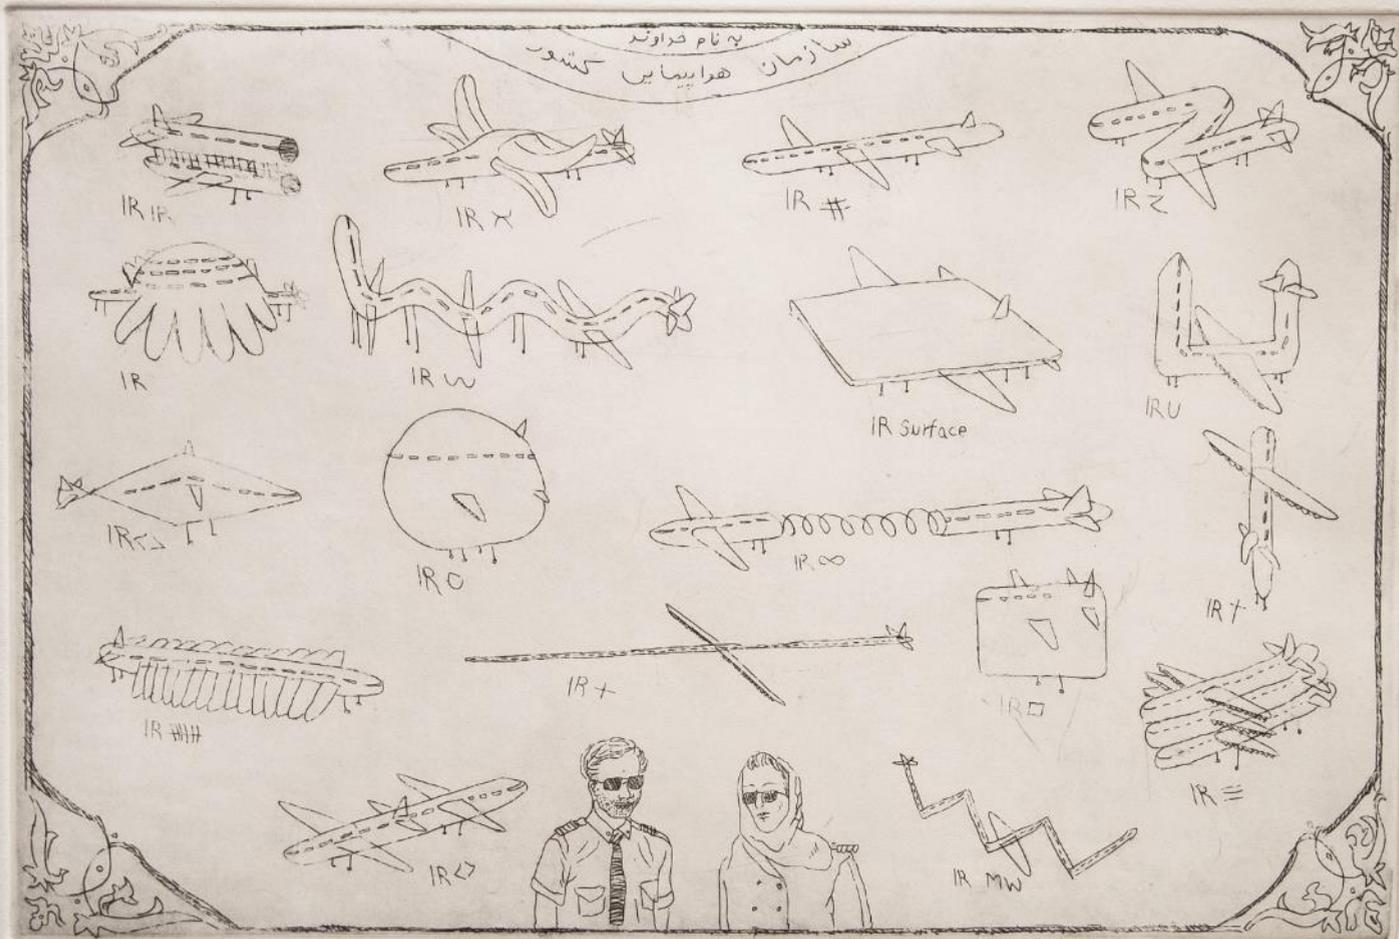 به نام خداوند
سازمان هواپیمایی کشور
IR IR
IR X
IR #
IR Z
IR
IR W
IR Surface
IR U
IR<>
IR O
IR ∞
IR +
IR 卌
IR +
IR □
IR ≡
IR <>
IR MW